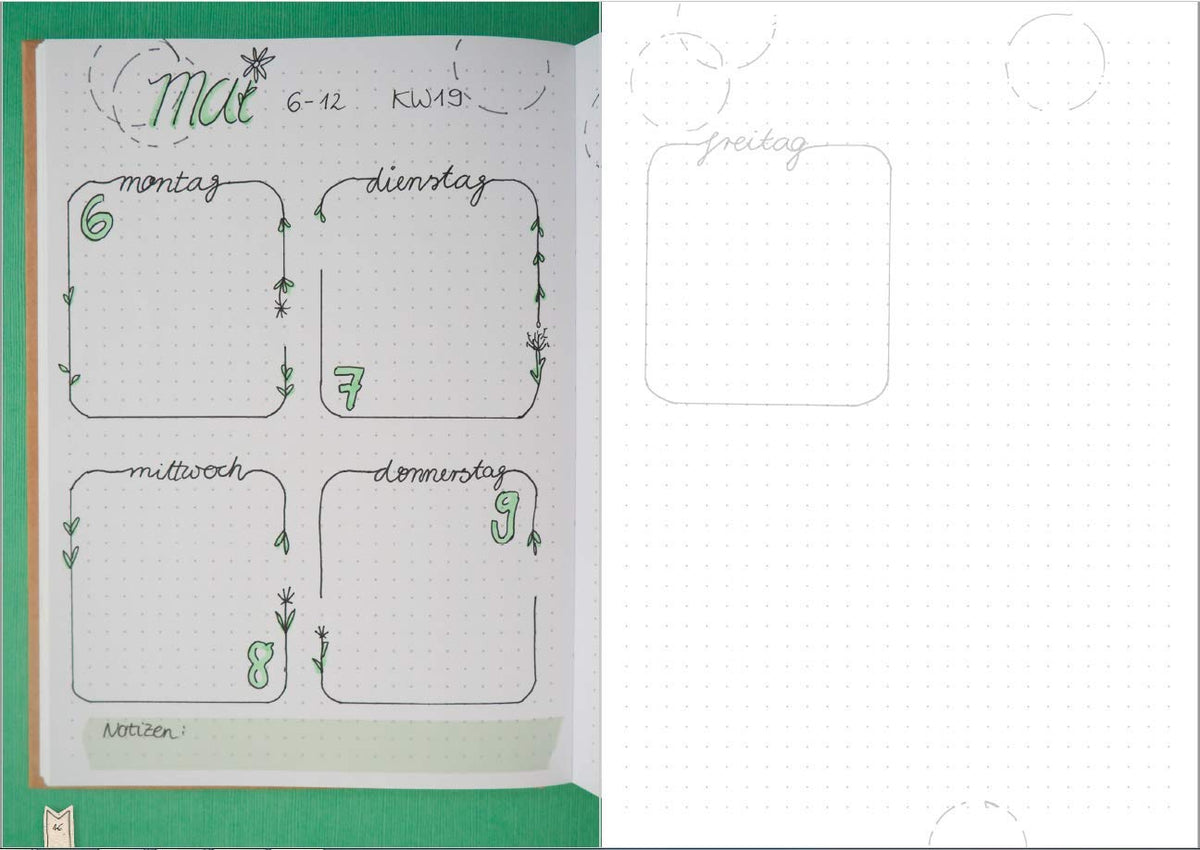 mai 6-12 KW19
montag
6
dienstag
7
mittwoch
8
donnerstag
9
Notizen:
freitag